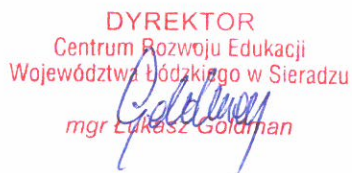 DYREKTOR
Centrum Rozwoju Edukacji
Województwa Łódzkiego w Sieradzu
mgr Łukasz Goldman
Goldman